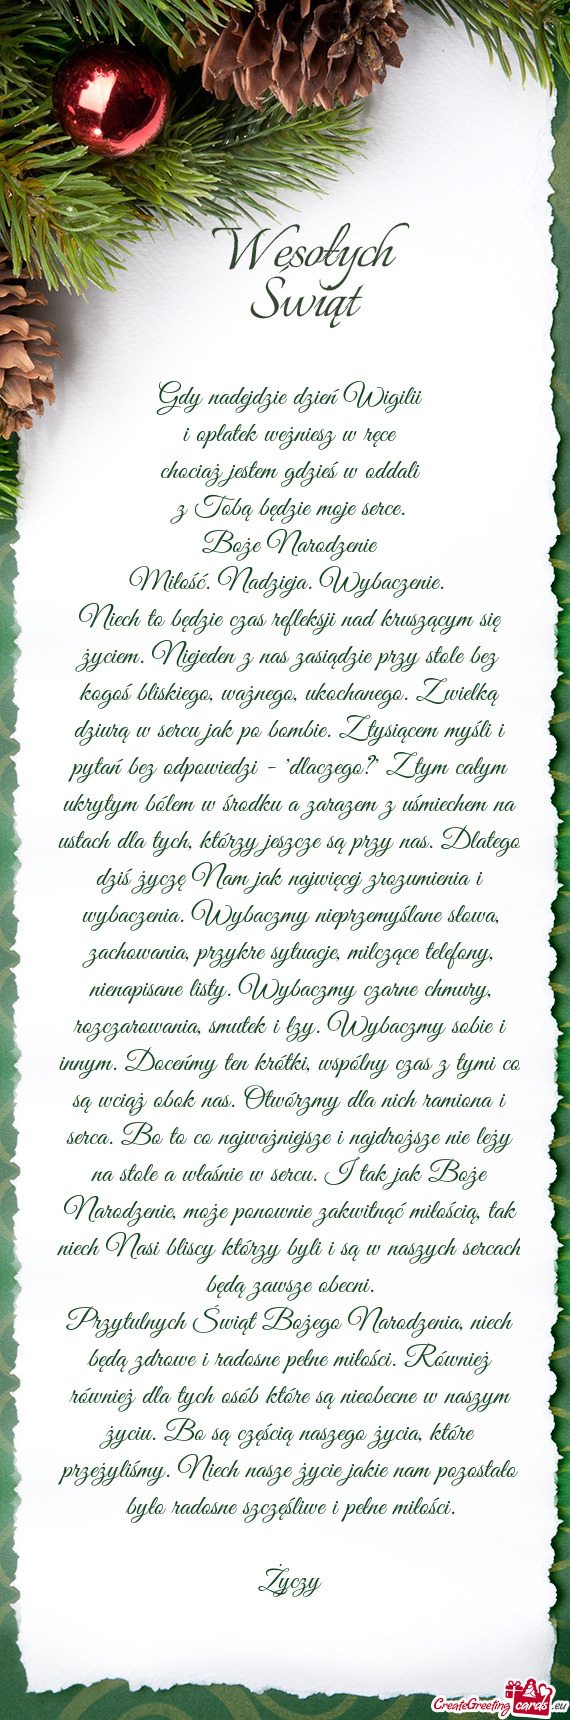 Wesołych
Świąt
Gdy nadejdzie dzień Wigilii
i opłatek weźniesz w ręce
chociaż jestem gdzieś w oddali
z Tobą będzie moje serce.
Boże Narodzenie
Miłość. Nadzieja. Wybaczenie.
Niech to będzie czas refleksji nad kruszącym się
życiem. Niejeden z nas zasiądzie przy stole bez
kogoś bliskiego, ważnego, ukochanego. Z wielką
dziurą w sercu jak po bombie. Z tysiącem myśli i
pytań bez odpowiedzi - "dlaczego?" Z tym całym
ukrytym bólem w środku a zarazem z uśmiechem na
ustach dla tych, którzy jeszcze są przy nas. Dlatego
dziś życzę Nam jak najwięcej zrozumienia i
wybaczenia. Wybaczmy nieprzemyślane słowa,
zachowania, przykre sytuacje, milczące telefony,
nienapisane listy. Wybaczmy czarne chmury,
rozczarowania, smutek i łzy. Wybaczmy sobie i
innym. Doceńmy ten krótki, wspólny czas z tymi co
są wciąż obok nas. Otwórzmy dla nich ramiona i
serca. Bo to co najważniejsze i najdroższe nie leży
na stole a właśnie w sercu. I tak jak Boże
Narodzenie, może ponownie zakwitnąć miłością, tak
niech Nasi bliscy którzy byli i są w naszych sercach
będą zawsze obecni.
Przytulnych Świąt Bożego Narodzenia, niech
będą zdrowe i radosne pełne miłości. Również
również dla tych osób które są nieobecne w naszym
życiu. Bo są częścią naszego życia, które
przeżyliśmy. Niech nasze życie jakie nam pozostało
było radosne szczęśliwe i pełne miłości.
Życzy
CreateGreeting cards.eu